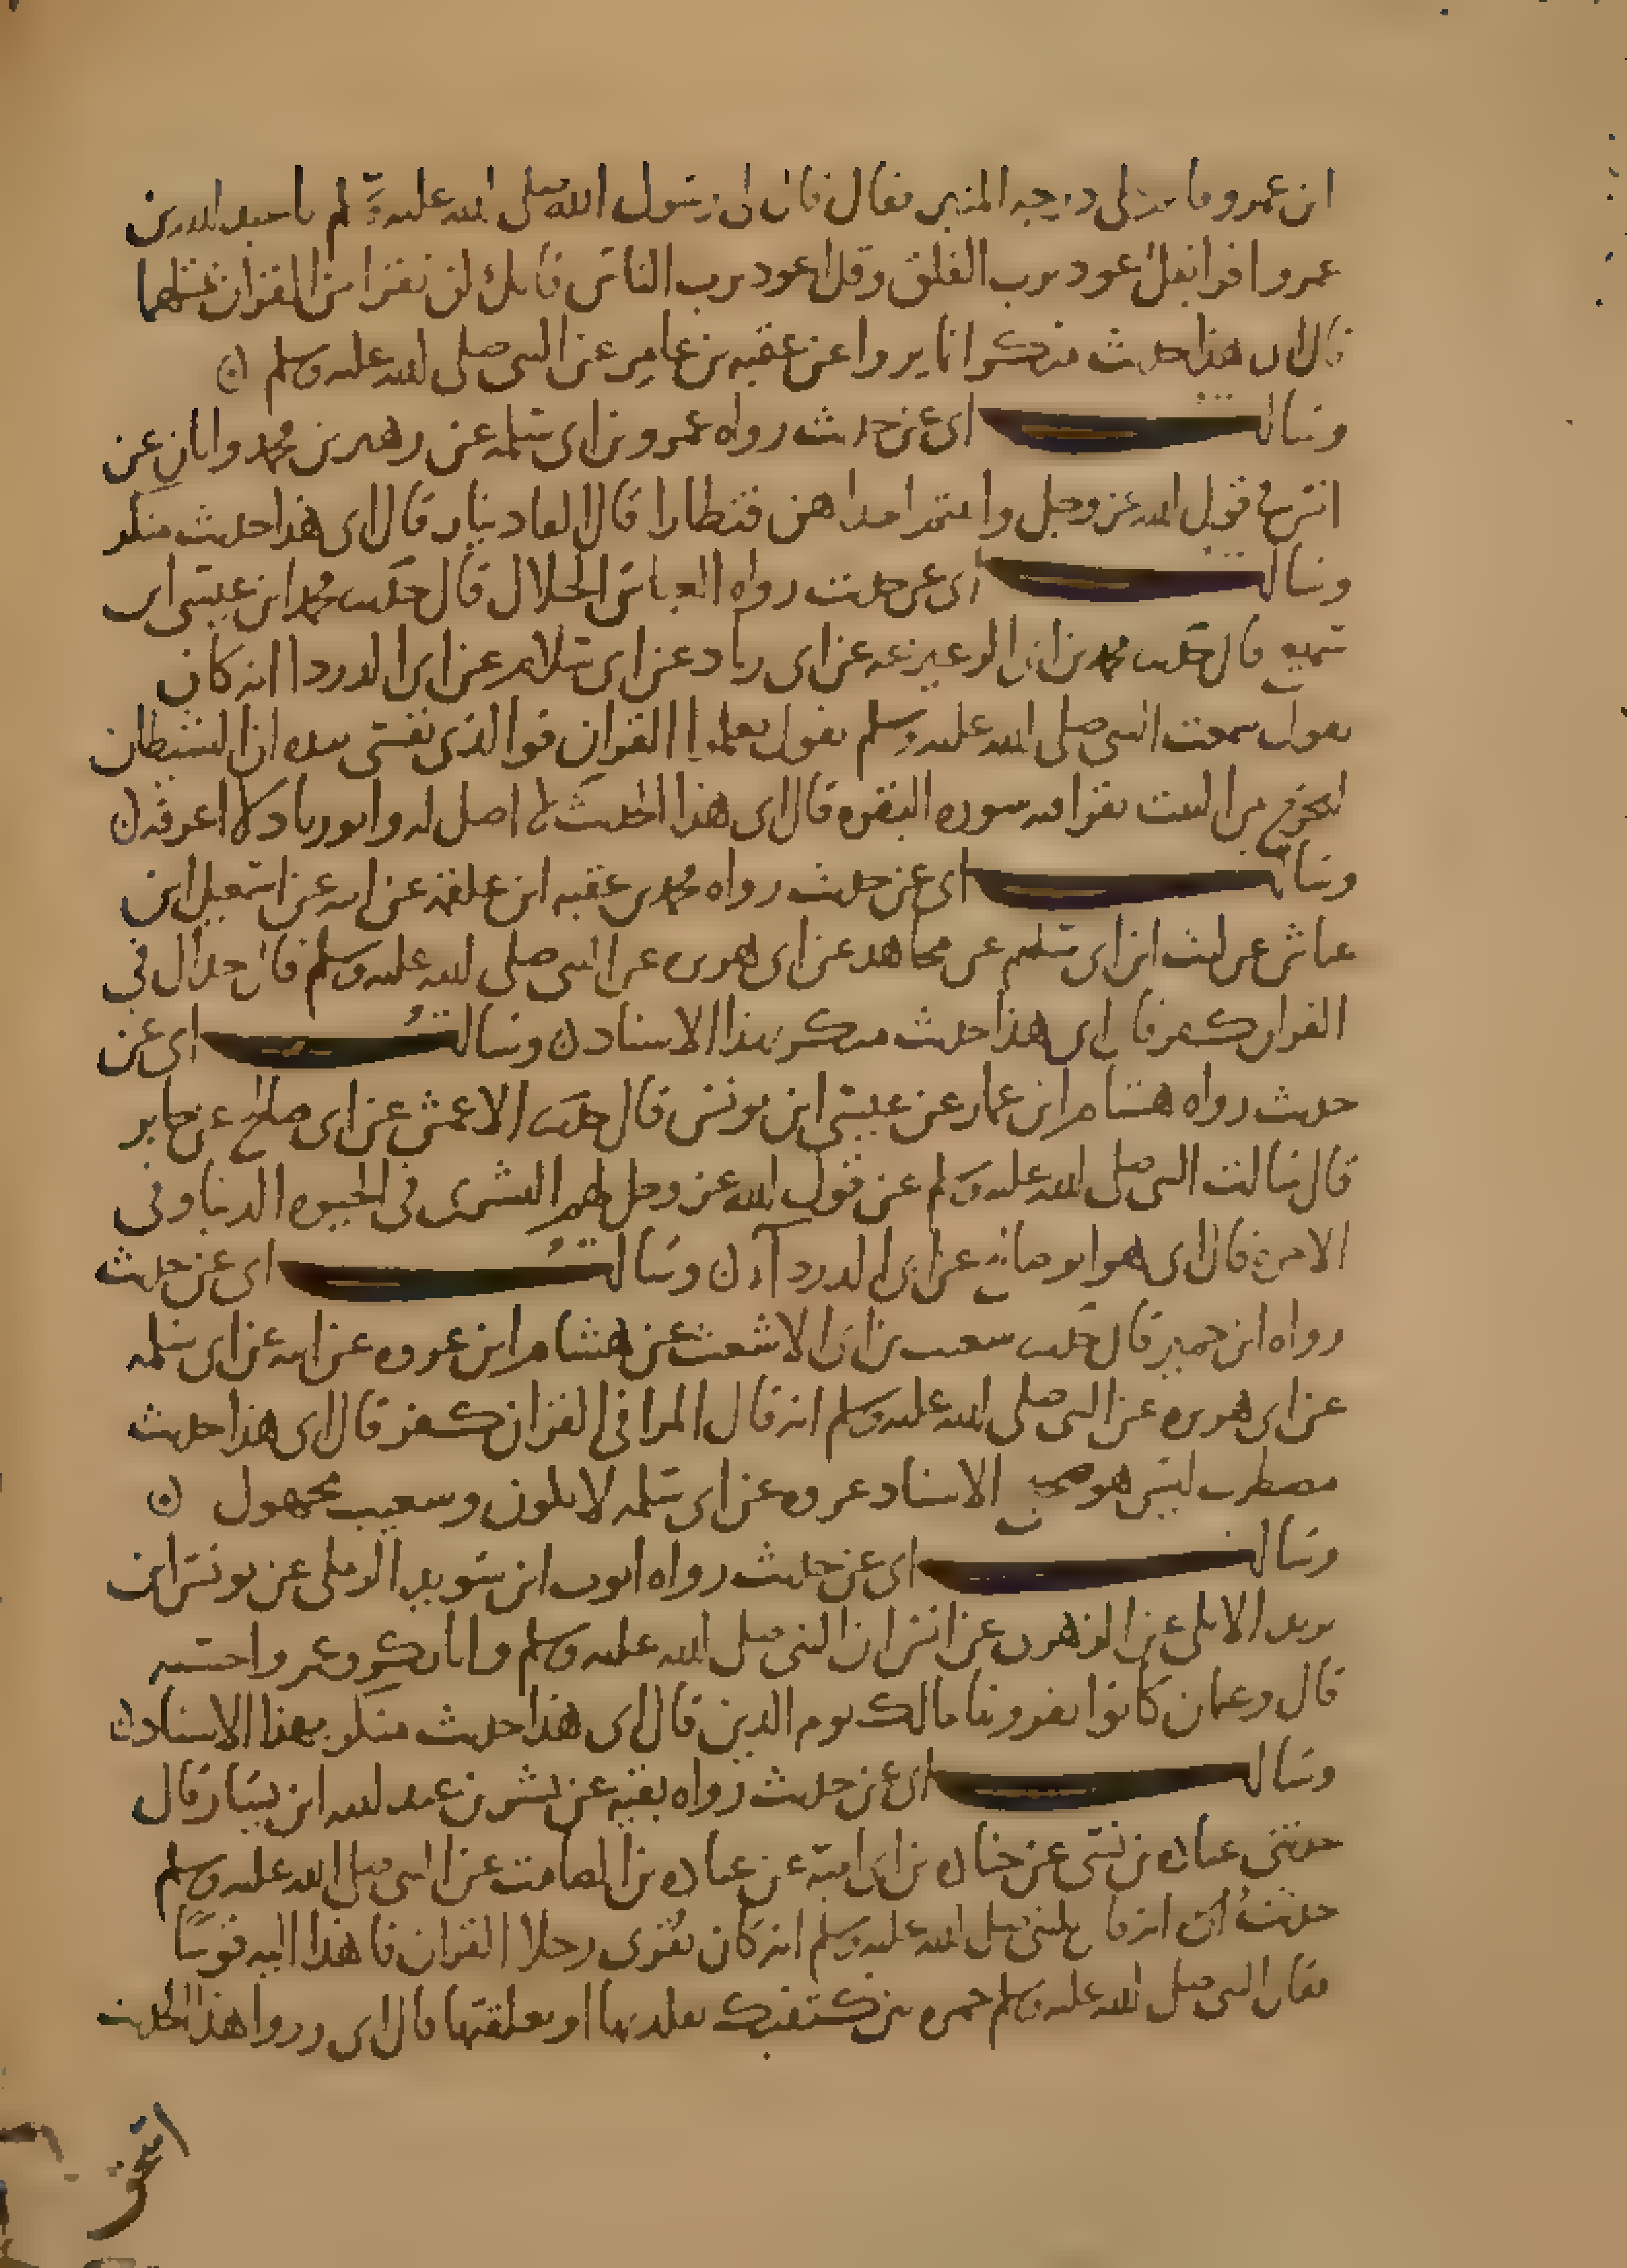 ابن عمرو قاعد على درجه المنبر فقال قال لى رسول الله صلى الله عليه وسلم يا عبد الله بن
عمرو اقرا بقل اعوذ برب الفلق وقل اعوذ برب الناس فانك لن تقرا من القران مثلهما
قال ابى هذا حديث منكر انما يروا عن عقبه بن عامر عن النبى صلى الله عليه وسلم ن
وسالت ابى عن حديث رواه عمرو بن ابى سلمه عن زهير بن محمد وابان عن
انس فى قول الله عز وجل واتيتم احداهن قنطارا قال الفا دينار قال ابى هذا حديث منكر
وسالت ابى عن حديث رواه العباس الخلال قال حدثنا محمد ابن عيسى ابن
سميع قال حدثنا محمد بن ابى الزعيزعه عن ابى زياد عن ابى سلام عن ابى الدردا انه كان
يقول سمعت النبى صلى الله عليه وسلم يقول تعلموا القران فوالذى نفسى بيده ان الشيطان
ليخرج من البيت يقرا فيه سوره البقره قال ابى هذا الحديث لا اصل له وابو زياد لا اعرفه ن
وسالت ابى عن حديث رواه محمد بن عقبه ابن علقمه عن ابيه عن اسمعيل ابن
عياش عن ليث ابن ابى سليم عن مجاهد عن ابى هريره عن النبى صلى الله عليه وسلم قال جدال فى
القران كفر قال ابى هذا حديث منكر بهذا الاسناد ن وسالت ابى عن
حديث رواه هشام ابن عمار عن عيسى ابن يونس قال حدثنا الاعمش عن ابى صالح عن جابر
قال سالت النبى صلى الله عليه وسلم عن قول الله عز وجل لهم البشرى فى الحيوه الدنيا وفى
الاخره قال ابى هو ابو صالح عن ابى الدردآ ن وسالت ابى عن حديث
رواه ابن حمير قال حدثنا شعيب بن ابى الاشعث عن هشام ابن عروه عن ابيه عن ابى سلمه
عن ابى هريره عن النبى صلى الله عليه وسلم انه قال المرا فى القران كفر قال ابى هذا حديث
مضطرب ليس هو صحيح الاسناد عروه عن ابى سلمه لا يكون وشعيب مجهول ن
وسالت ابى عن حديث رواه ايوب ابن سويد الرملى عن يونس ابن
يزيد الايلى عن الزهرى عن انس ان النبى صلى الله عليه وسلم وابا بكر وعمر واحسبه
قال وعثمان كانوا يقرونها مالك يوم الدين قال ابى هذا حديث منكر بهذا الاسناد ن
وسالت ابى عن حديث رواه بقيه عن بشر بن عبد الله ابن يسار قال
حدثنى عباده بن نسى عن جناده بن ابى اميه عن عباده بن الصامت عن النبى صلى الله عليه وسلم
حديث ابى انه قال للنبى صلى الله عليه وسلم انه كان يقرى رجلا القران فاهدا اليه قوسا
فقال النبى صلى الله عليه وسلم جمره بين كتفيك تقلدتها او تعلقتها قال ابى وروا هذا الحديث